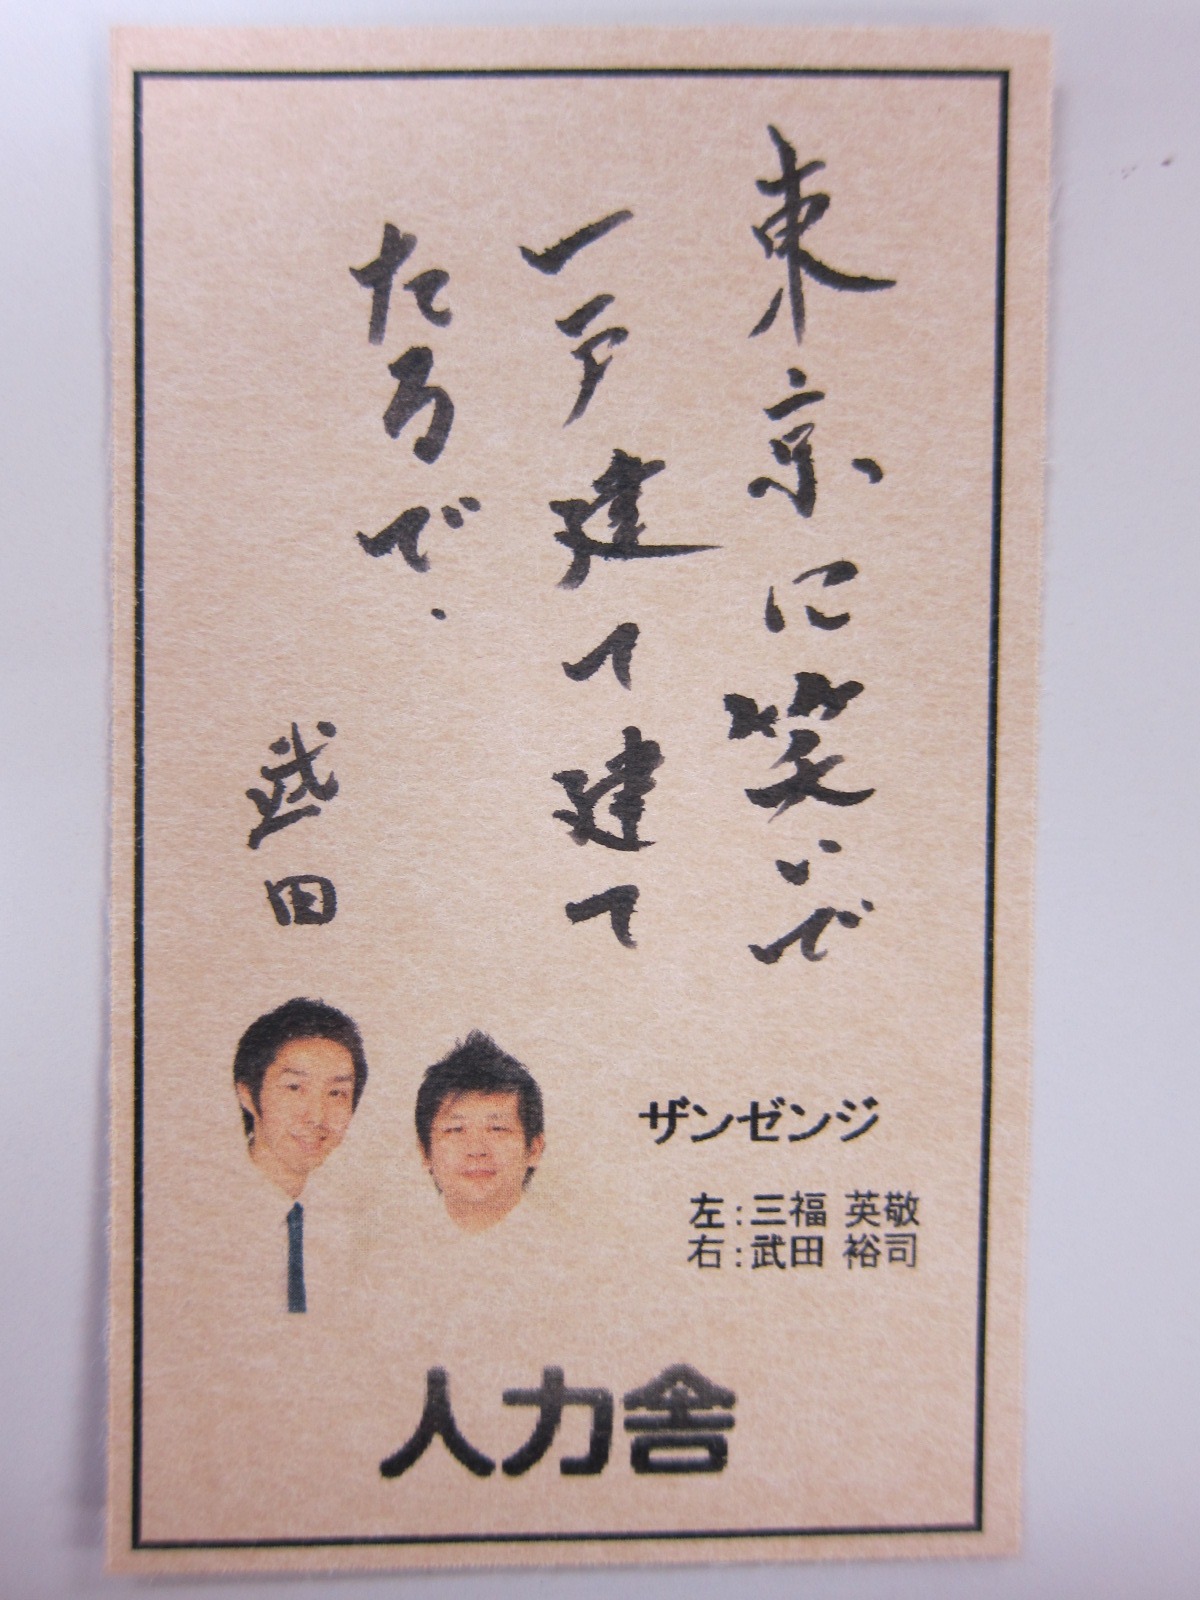 東京に笑いで
一戸建て建て
たるで.
武田
ザンゼンジ
左:三福 英敬
右:武田 裕司
人力舎